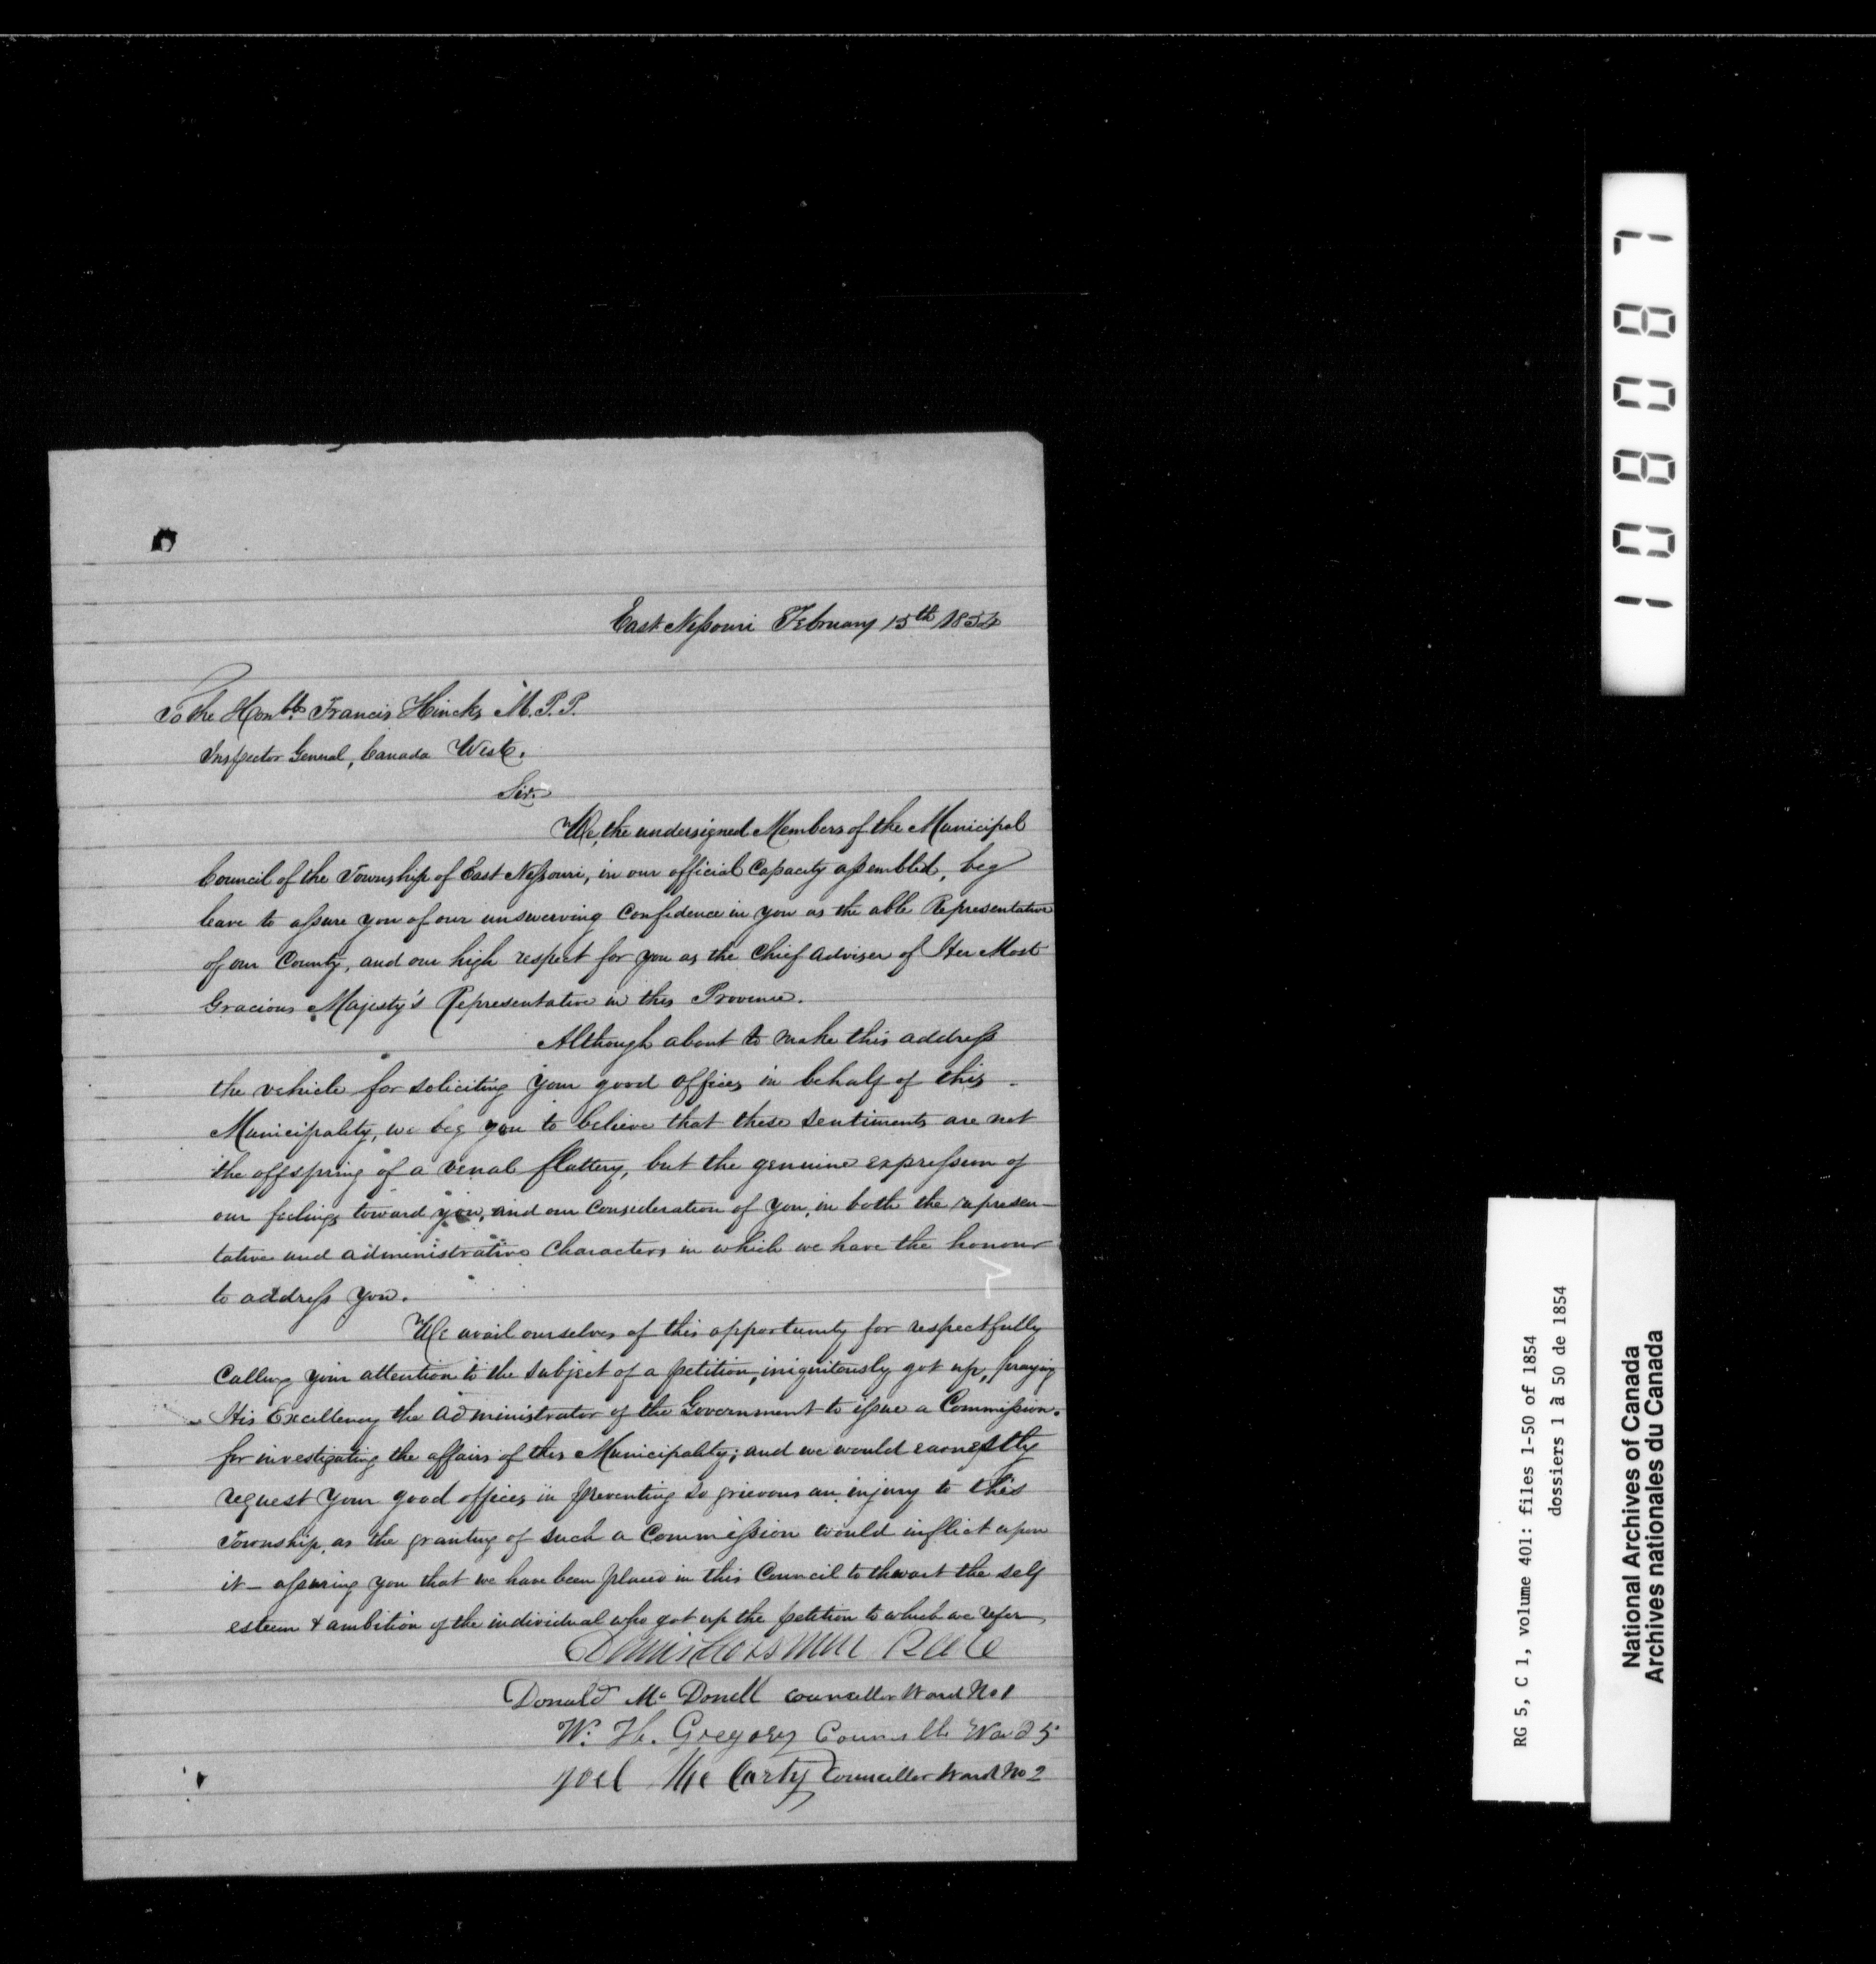 East Nissouri February 15th 1854
To the Honble. Francis Hincks M.P.P.
Inspector General, Canada West.
Sir.
We, the undersigned Members of the Municipal
Council of the Township of East Nissouri, in our official Capacity assembled, beg
leave to assure you of our unswerving Confidence in you as the able Representative
of our County, and our high respect for you as the Chief adviser of Her Most
Gracious Majesty's Representative in this Province.
Although about to make this address
the vehicle for soliciting your good offices in behalf of this
Municipality, we beg you to believe that these sentiments are not
the offspring of a venal flattery, but the genuine expression of
our feelings toward you, and our Consideration of you, in both the represen-
tative and administrative Characters in which we have the honour
to address you.
We avail ourselves of this opportunity for respectfully
Calling your attention to the subject of a petition, iniquitously got up, praying
His Excellency the Administrator of the Government to issue a Commission
for investigating the affairs of this Municipality; and we would earnestly
request your good offices in preventing so grievous an injury to this
Township, as the granting of such a Commission would inflict upon
it - assuring you that we have been placed in this Council to thwart the self
esteem & ambition of the individual who got up the petition to which we refer
Donald Mc Donell Councellor Ward No 1
W. H. Gregory Ward 5
Joel Mc Carty Councellor Ward No 2
108087
RG 5, C 1, volume 401: files 1-50 of 1854
dossiers 1 à 50 de 1854
National Archives of Canada
Archives nationales du Canada